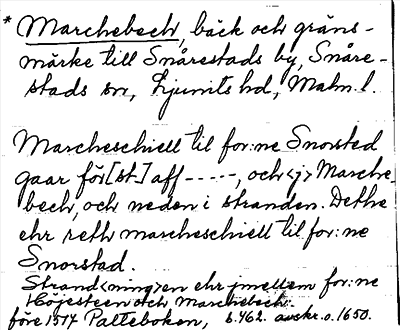 * Marchebech, bäck och gräns-
märke till Snårestads by, Snåre-
stads sn, Ljunits hd, Malm. l.
Marcheschiell til for:ne Snorsted
gaar förs[st.] aff -----, och <j> Marche-
bech, och neden i stranden. Dethe
ehr reth marcheschiell til for:ne
Snorstad.
Strand<ning>en ehr jmellem for:ne
Höjesteen och Marchebech.
före 1517 Palteboken, s. 462. avskr. o. 1650.